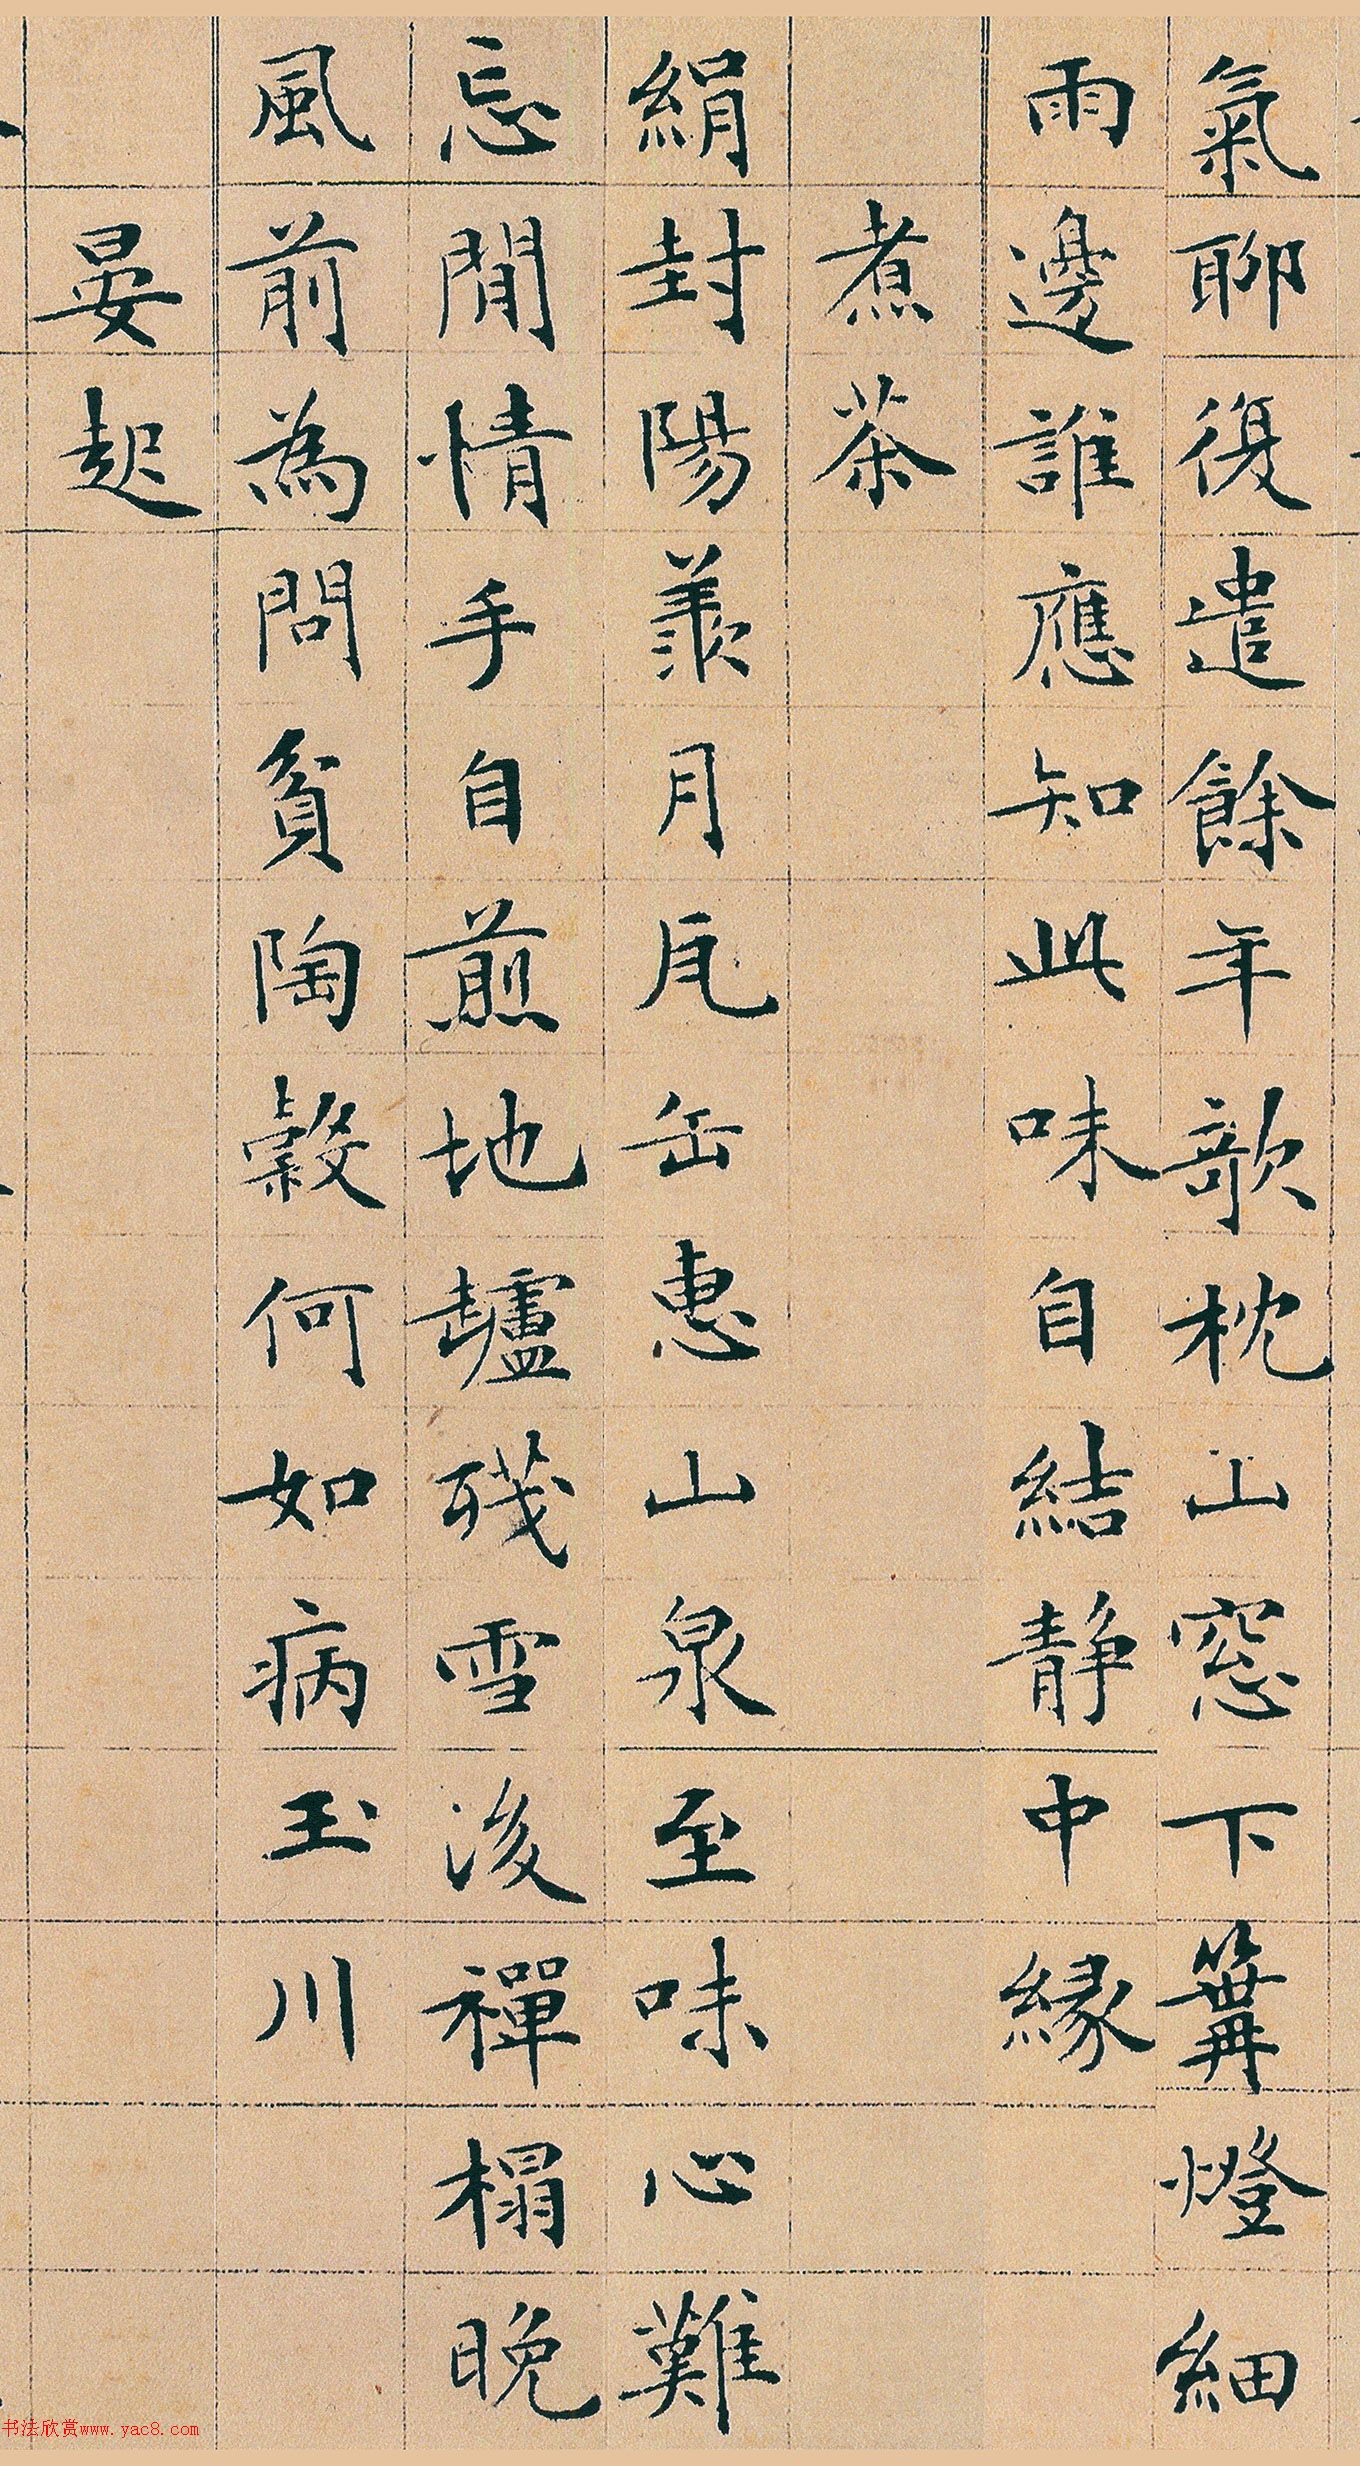 氣聊復遣餘年歆枕山窓下篝燈細
雨邊誰應知此味自結静中緣
煮茶
絹封陽羨月瓦缶惠山泉至味心難
忘閒情手自煎地壚殘雪後禪榻晚
風前為問貧陶穀何如病玉川
晏起
书法欣赏www.yac8.com